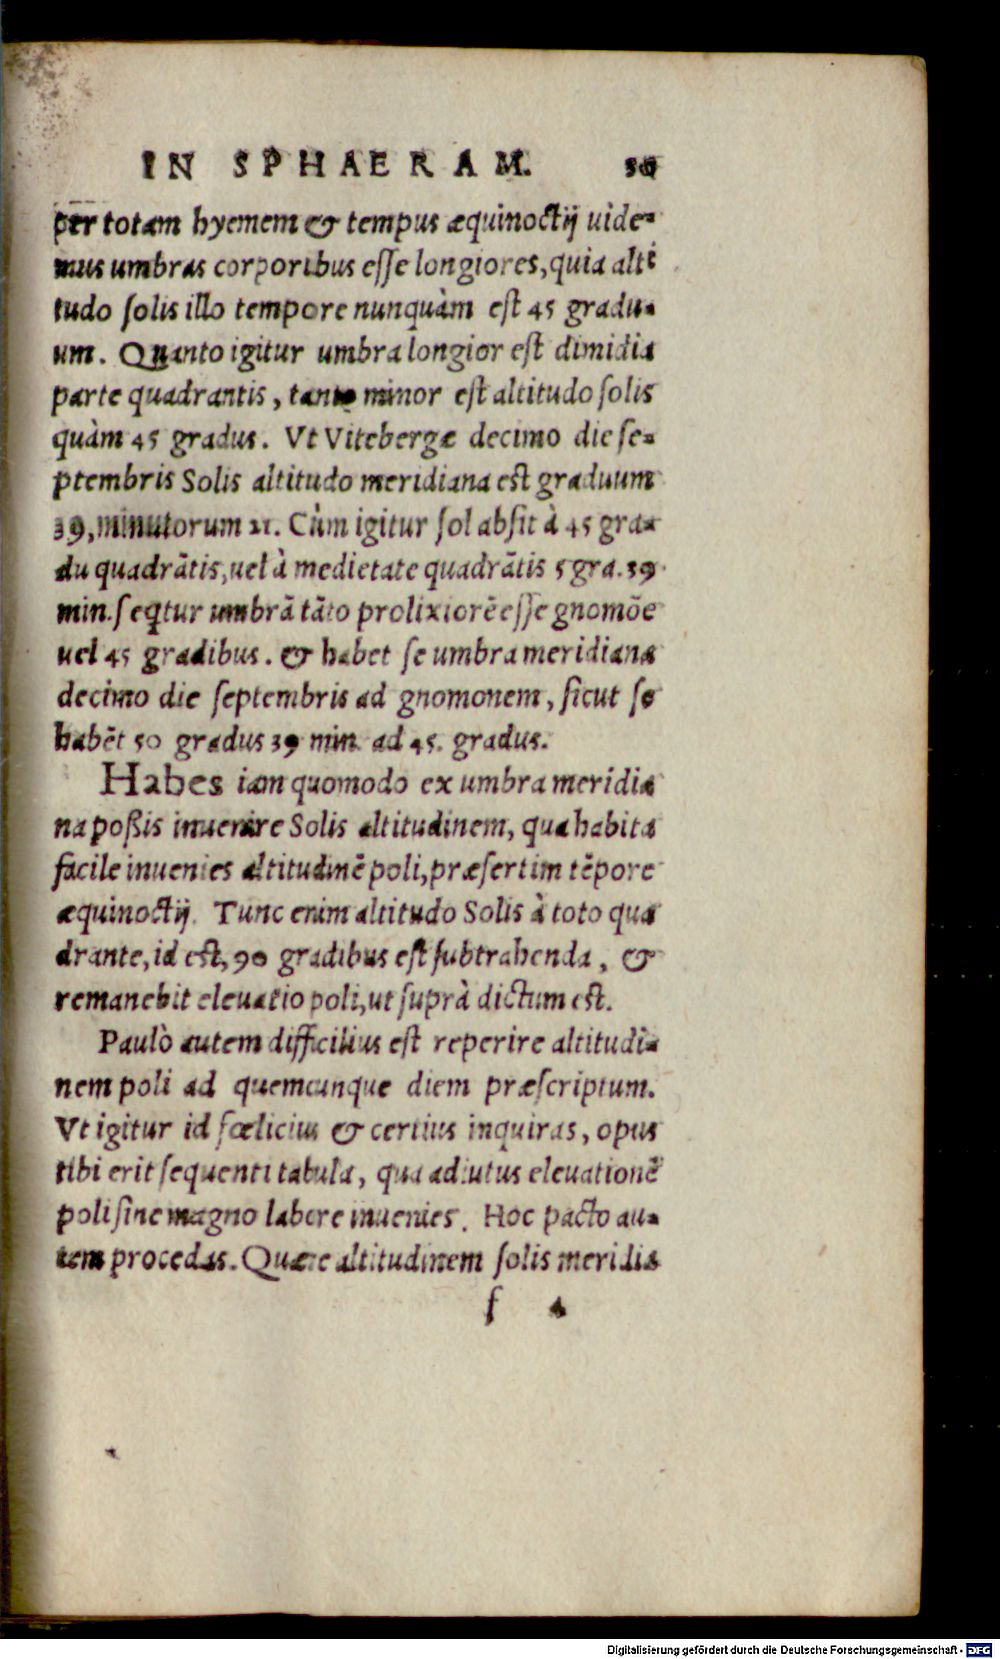 IN SPHAERAM.
per totam hyemem & tempus æquinoctij uide-
mus umbras corporibus eſſe longiores, quia alti
tudo ſolis illo tempore nunquàm eſt 45 gradu-
um. Quanto igitur umbra longior eſt dimidia
parte quadrantis, tanto minor eſt altitudo ſolis
quàm 45 gradus. Vt Vitebergæ decimo die ſe-
ptembris Solis altitudo meridiana eſt graduum
39, minutorum 21. Cùm igitur ſol abſit à 45 gra-
du quadrātis, uel à medietate quadrātis 5 gra. 39
min. ſeqtur umbrā tāto prolixiorē eſſe gnomōe
uel 45 gradibus. & habet ſe umbra meridiana
decimo die ſeptembris ad gnomonem, ſicut ſe
habēt 50 gradus 39 min. ad 45. gradus.
Habes iam quomodo ex umbra meridia
na poßis inuenire Solis altitudinem, qua habita
facile inuenies altitudinē poli, præſertim tēpore
æquinoctij. Tunc enim altitudo Solis à toto qua
drante, id eſt, 90 gradibus eſt ſubtrahenda, &
remanebit eleuatio poli, ut ſuprà dictum eſt.
Paulò autem difficilius eſt reperire altitudi-
nem poli ad quemcunque diem præſcriptum.
Vt igitur id fœlicius & certius inquiras, opus
tibi erit ſequenti tabula, qua adiutus eleuationē
poli ſine magno labore inuenies. Hoc pacto au-
tem procedas. Quære altitudinem ſolis meridia
f 4
Digitalisierung gefördert durch die Deutsche Forschungsgemeinschaft - DFG